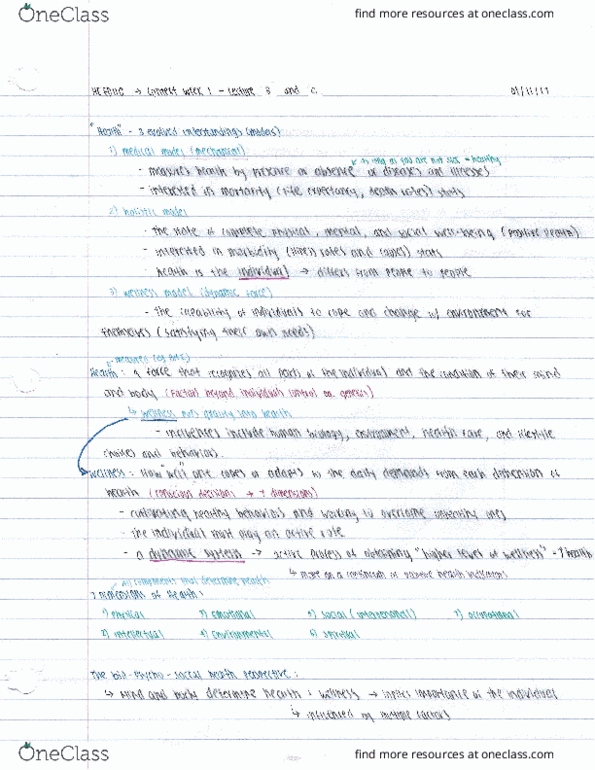 OneClass
find more resources at oneclass.com
→ week 1 - Lecture 3 and C.
"Health" - 3 evolved understandings (models)
1) medical model (mechanism)
as long as you are not sick = healthy
- measures health by presence or absence of diseases and illnesses
- interested in mortality (life expectancy, death rates) stats
2) holistic model
- the state of complete physical, mental, and social well-being (positive health)
- interested in morbidity (illness rates and causes) stats
health is the individual → differs from people to people
3) wellness model (dynamic force)
- the capability of individuals to cope and change w/ environment for
themselves (satisfying their own needs)
measured
Health: a force that recognizes all parts of the individual and the condition of their mind
and body (factors beyond individuals control ex. genetics)
↳ wellness puts quality into health
- influences include human biology, environment, health care, and lifestyle
choices and behaviors.
Wellness: How "well" one copes or adapts to the daily demands from each dimension of
health (conscious decisions → 7 dimensions)
- cultivating healthy behaviors and working to overcome unhealthy ones
- the individual must play an active role
- a dynamic system → active process of obtaining "higher level of wellness" - ↑ health
↳ more on a continuum of positive health indicators
all components that determine health
7 Dimensions of Health:
1) physical 3) emotional 5) social (interpersonal) 7) occupational
2) intellectual 4) environmental 6) spiritual
The bio-psycho-social health perspective:
↳ mind and body determine health & wellness → implies importance of the individual
↳ influenced by multiple factors
OneClass
find more resources at oneclass.com